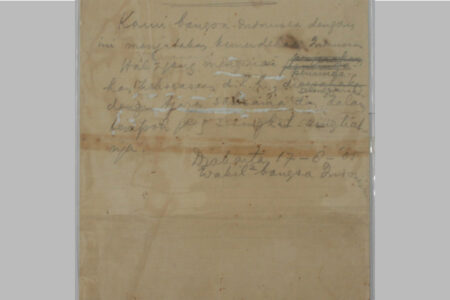 Kami bangsa Indonesia dengan
ini menjatakan kemerdekaan Indonesia
Hal2 jang mengenai
d.l.l.,
dengan tjara saksama dan dalam
tempoh jang sesingkat-singkat
nja
Djakarta, 17-8-
Wakil2 bangsa Indonesia